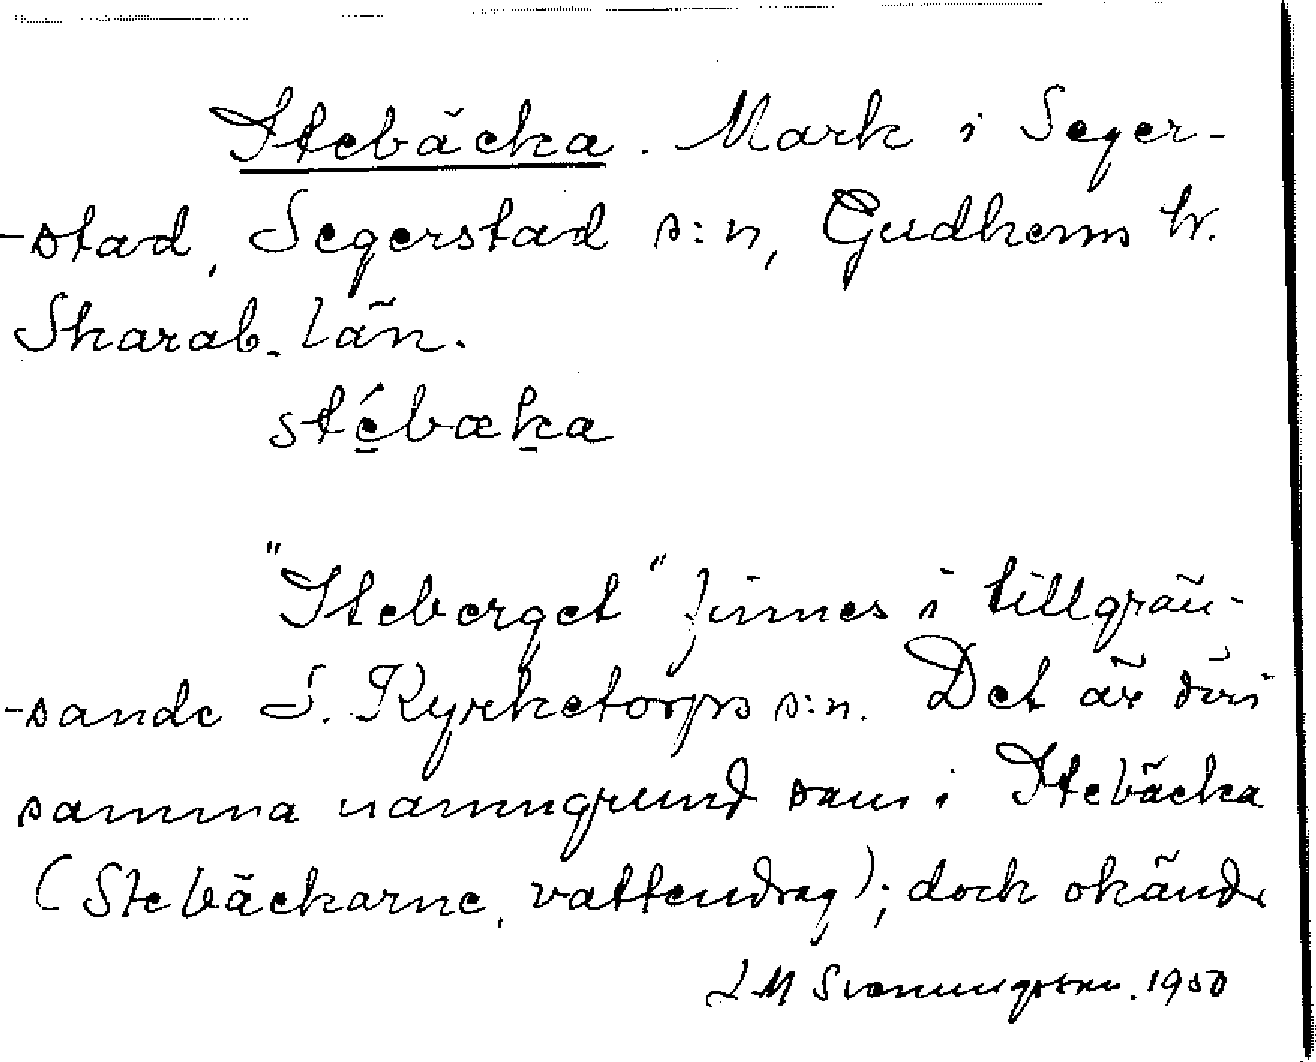 Stebäcka. Mark i Seger-
-stad, Segerstad s:n, Gudhems hr.
Skarab. län.
stébæka
"Steberget" finnes i tillgrän-
-sande S. Kyrketorps s:n. Det är
samma namngrund som i Stebäcka
(Stebäckarne, vattendrag); dock okänd
L M Svanungsson. 1950